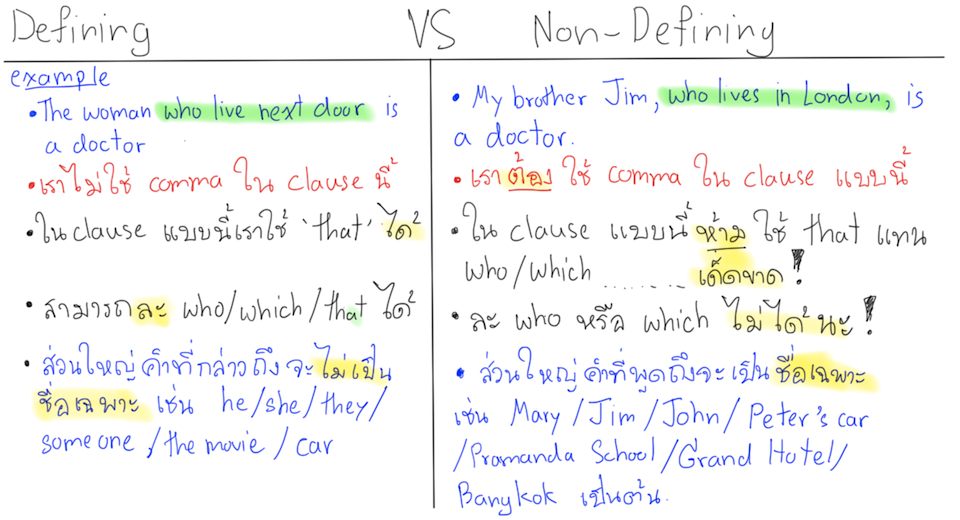 Defining VS Non-Defining
example
• The woman who live next door is
a doctor
• เราไม่ใช้ comma ใน clause นี้
• ใน clause แบบนี้เราใช้ 'that' ได้
• สามารถละ who/which/that ได้
• ส่วนใหญ่คำที่กล่าวถึงจะไม่เป็น
ชื่อเฉพาะ เช่น he/she/they/
someone, /the movie / car
• My brother Jim, who lives in London, is
a doctor.
• เราต้องใช้ comma ใน clause แบบนี้
• ใน clause แบบนี้ ห้าม ใช้ that แทน
who/which ......... เด็ดขาด!
• ละ who หรือ which ไม่ได้นะ!
• ส่วนใหญ่คำที่พูดถึงจะเป็น ชื่อเฉพาะ
เช่น Mary / Jim / John / Peter's car
/Pramanda School/Grand Hotel/
Bangkok เป็นต้น.